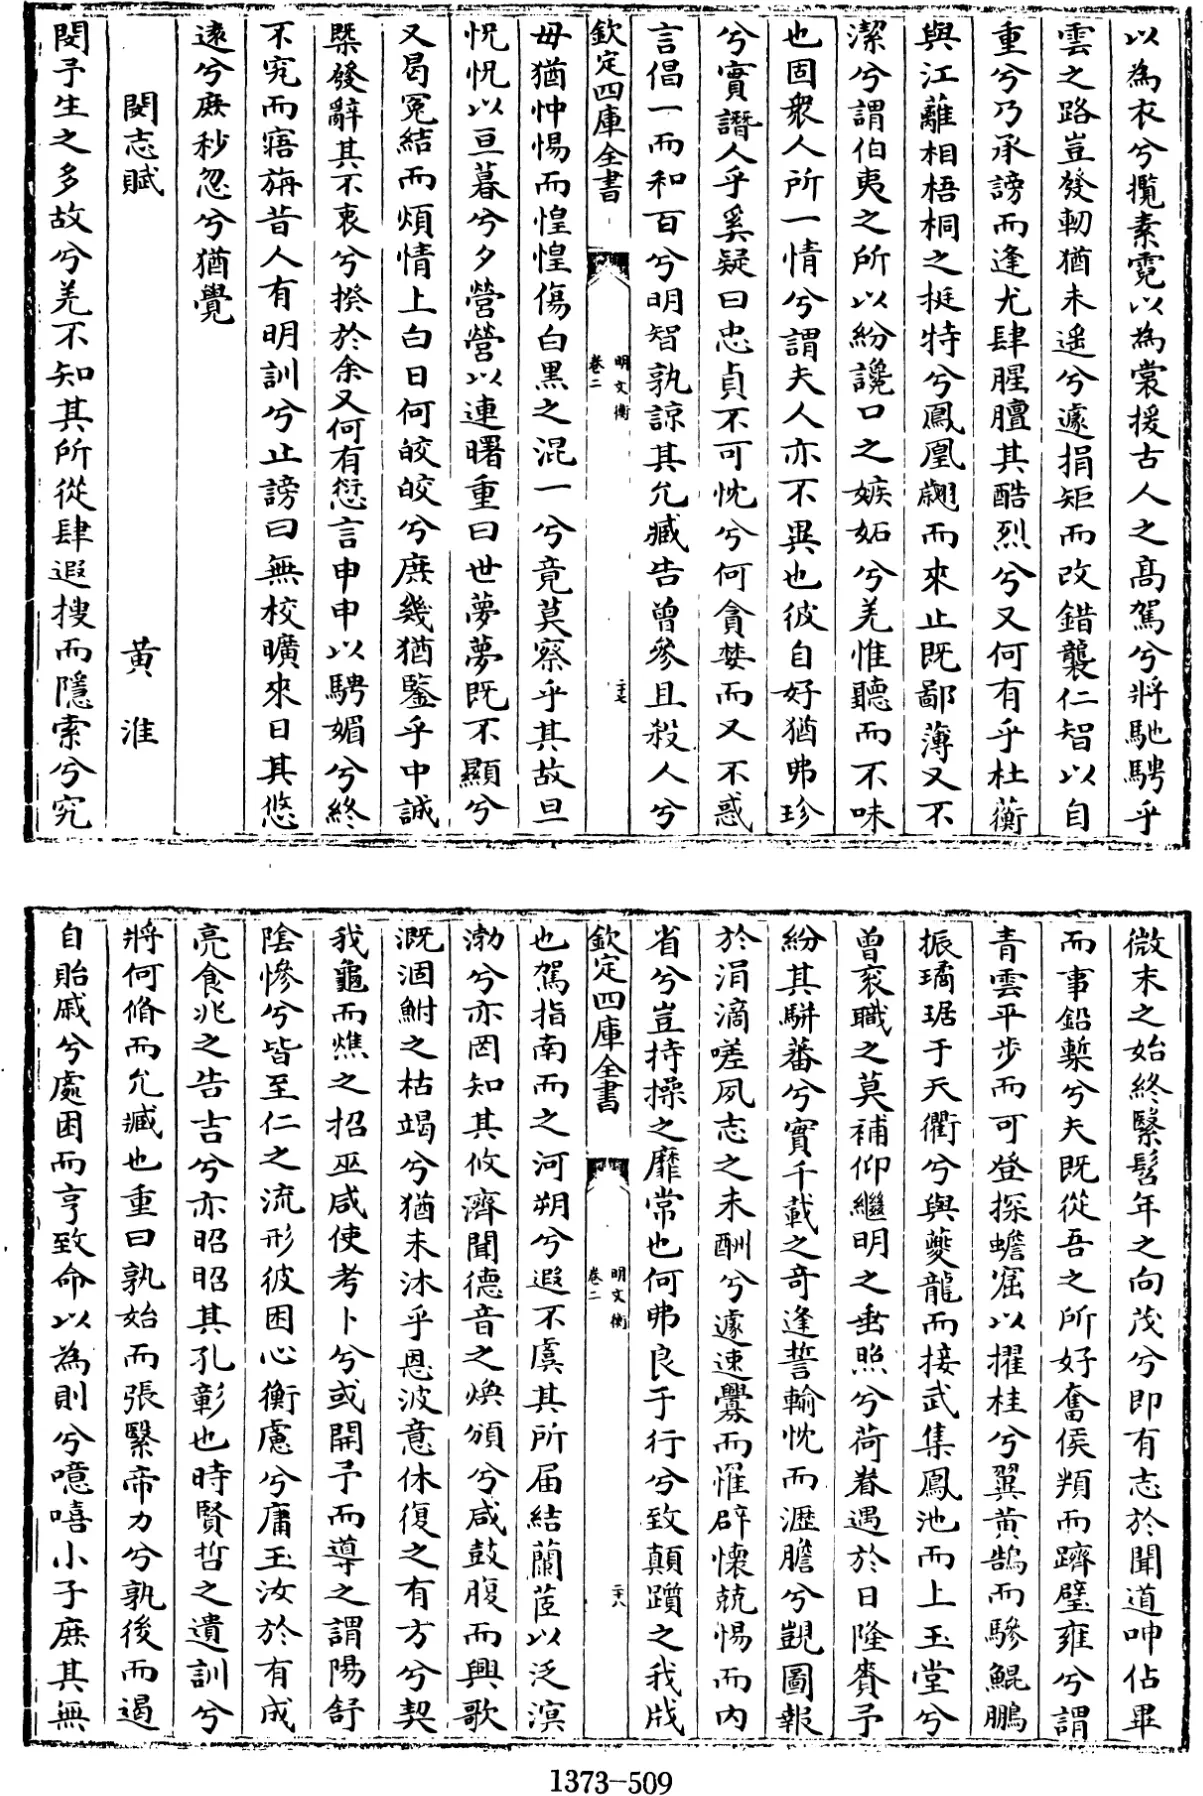 以為衣兮攬素霓以為裳援古人之高駕兮將馳騁乎
雲之路豈發軔猶未遥兮遽捐矩而改錯襲仁智以自
重兮乃承謗而逢尤肆腥膻其酷烈兮又何有乎杜蘅
與江蘺相梧桐之挺特兮鳳凰翽而來止既鄙薄又不
潔兮謂伯夷之所以紛讒口之嫉妬兮羌惟聽而不味
也固衆人所一情兮謂夫人亦不異也彼自好猶弗珍
兮實譖人乎奚疑曰忠貞不可忱兮何貪婪而又不惑
言倡一而和百兮明智孰諒其允臧告曾參且殺人兮
欽定四庫全書
明文衡
卷二
二十七
毋猶忡惕而惶惶傷白黒之混一兮竟莫察乎其故旦
怳怳以亘暮兮夕營營以連曙重曰世夢夢既不顯兮
又曷冤結而煩情上白日何皎皎兮庶幾猶鑒乎中誠
槩發辭其不衷兮揆於余又何有愆言申申以騁媚兮終
不究而寤旃昔人有明訓兮止謗曰無校曠來日其悠
逺兮庶秒忽兮猶覺
閔志賦
黄淮
閔予生之多故兮羌不知其所從肆遐搜而隱索兮究
微末之始終繄髫年之向茂兮即有志於聞道呻佔畢
而事鉛槧兮夫既從吾之所好奮侯頖而躋璧雍兮謂
青雲平步而可登探蟾窟以擢桂兮翼黄鵠而驂鯤鵬
振璚琚于天衢兮與夔龍而接武集鳳池而上玉堂兮
曾衮職之莫補仰繼明之垂照兮荷眷遇於日隆賚予
紛其駢蕃兮實千載之奇逢誓輸忱而瀝膽兮覬圖報
於涓滴嗟夙志之未酬兮遽速釁而罹辟懐兢惕而内
省兮豈持操之靡常也何弗良于行兮致顛躓之我戕
欽定四庫全書
明文衡
卷二
二十八
也駕指南而之河朔兮遐不虞其所届結蘭茝以泛溟
渤兮亦罔知其攸濟聞德音之煥頒兮咸鼓腹而興歌
溉涸鮒之枯竭兮猶未沐乎恩波意休復之有方兮契
我龜而燋之招巫咸使考卜兮或開予而導之謂陽舒
陰慘兮皆至仁之流形彼困心衡慮兮庸玉汝於有成
亮食兆之告吉兮亦昭昭其孔彰也時賢哲之遺訓兮
將何脩而允臧也重曰孰始而張繄帝力兮孰後而遏
自貽戚兮處困而亨致命以為則兮噫嘻小子庶其無
1373-509